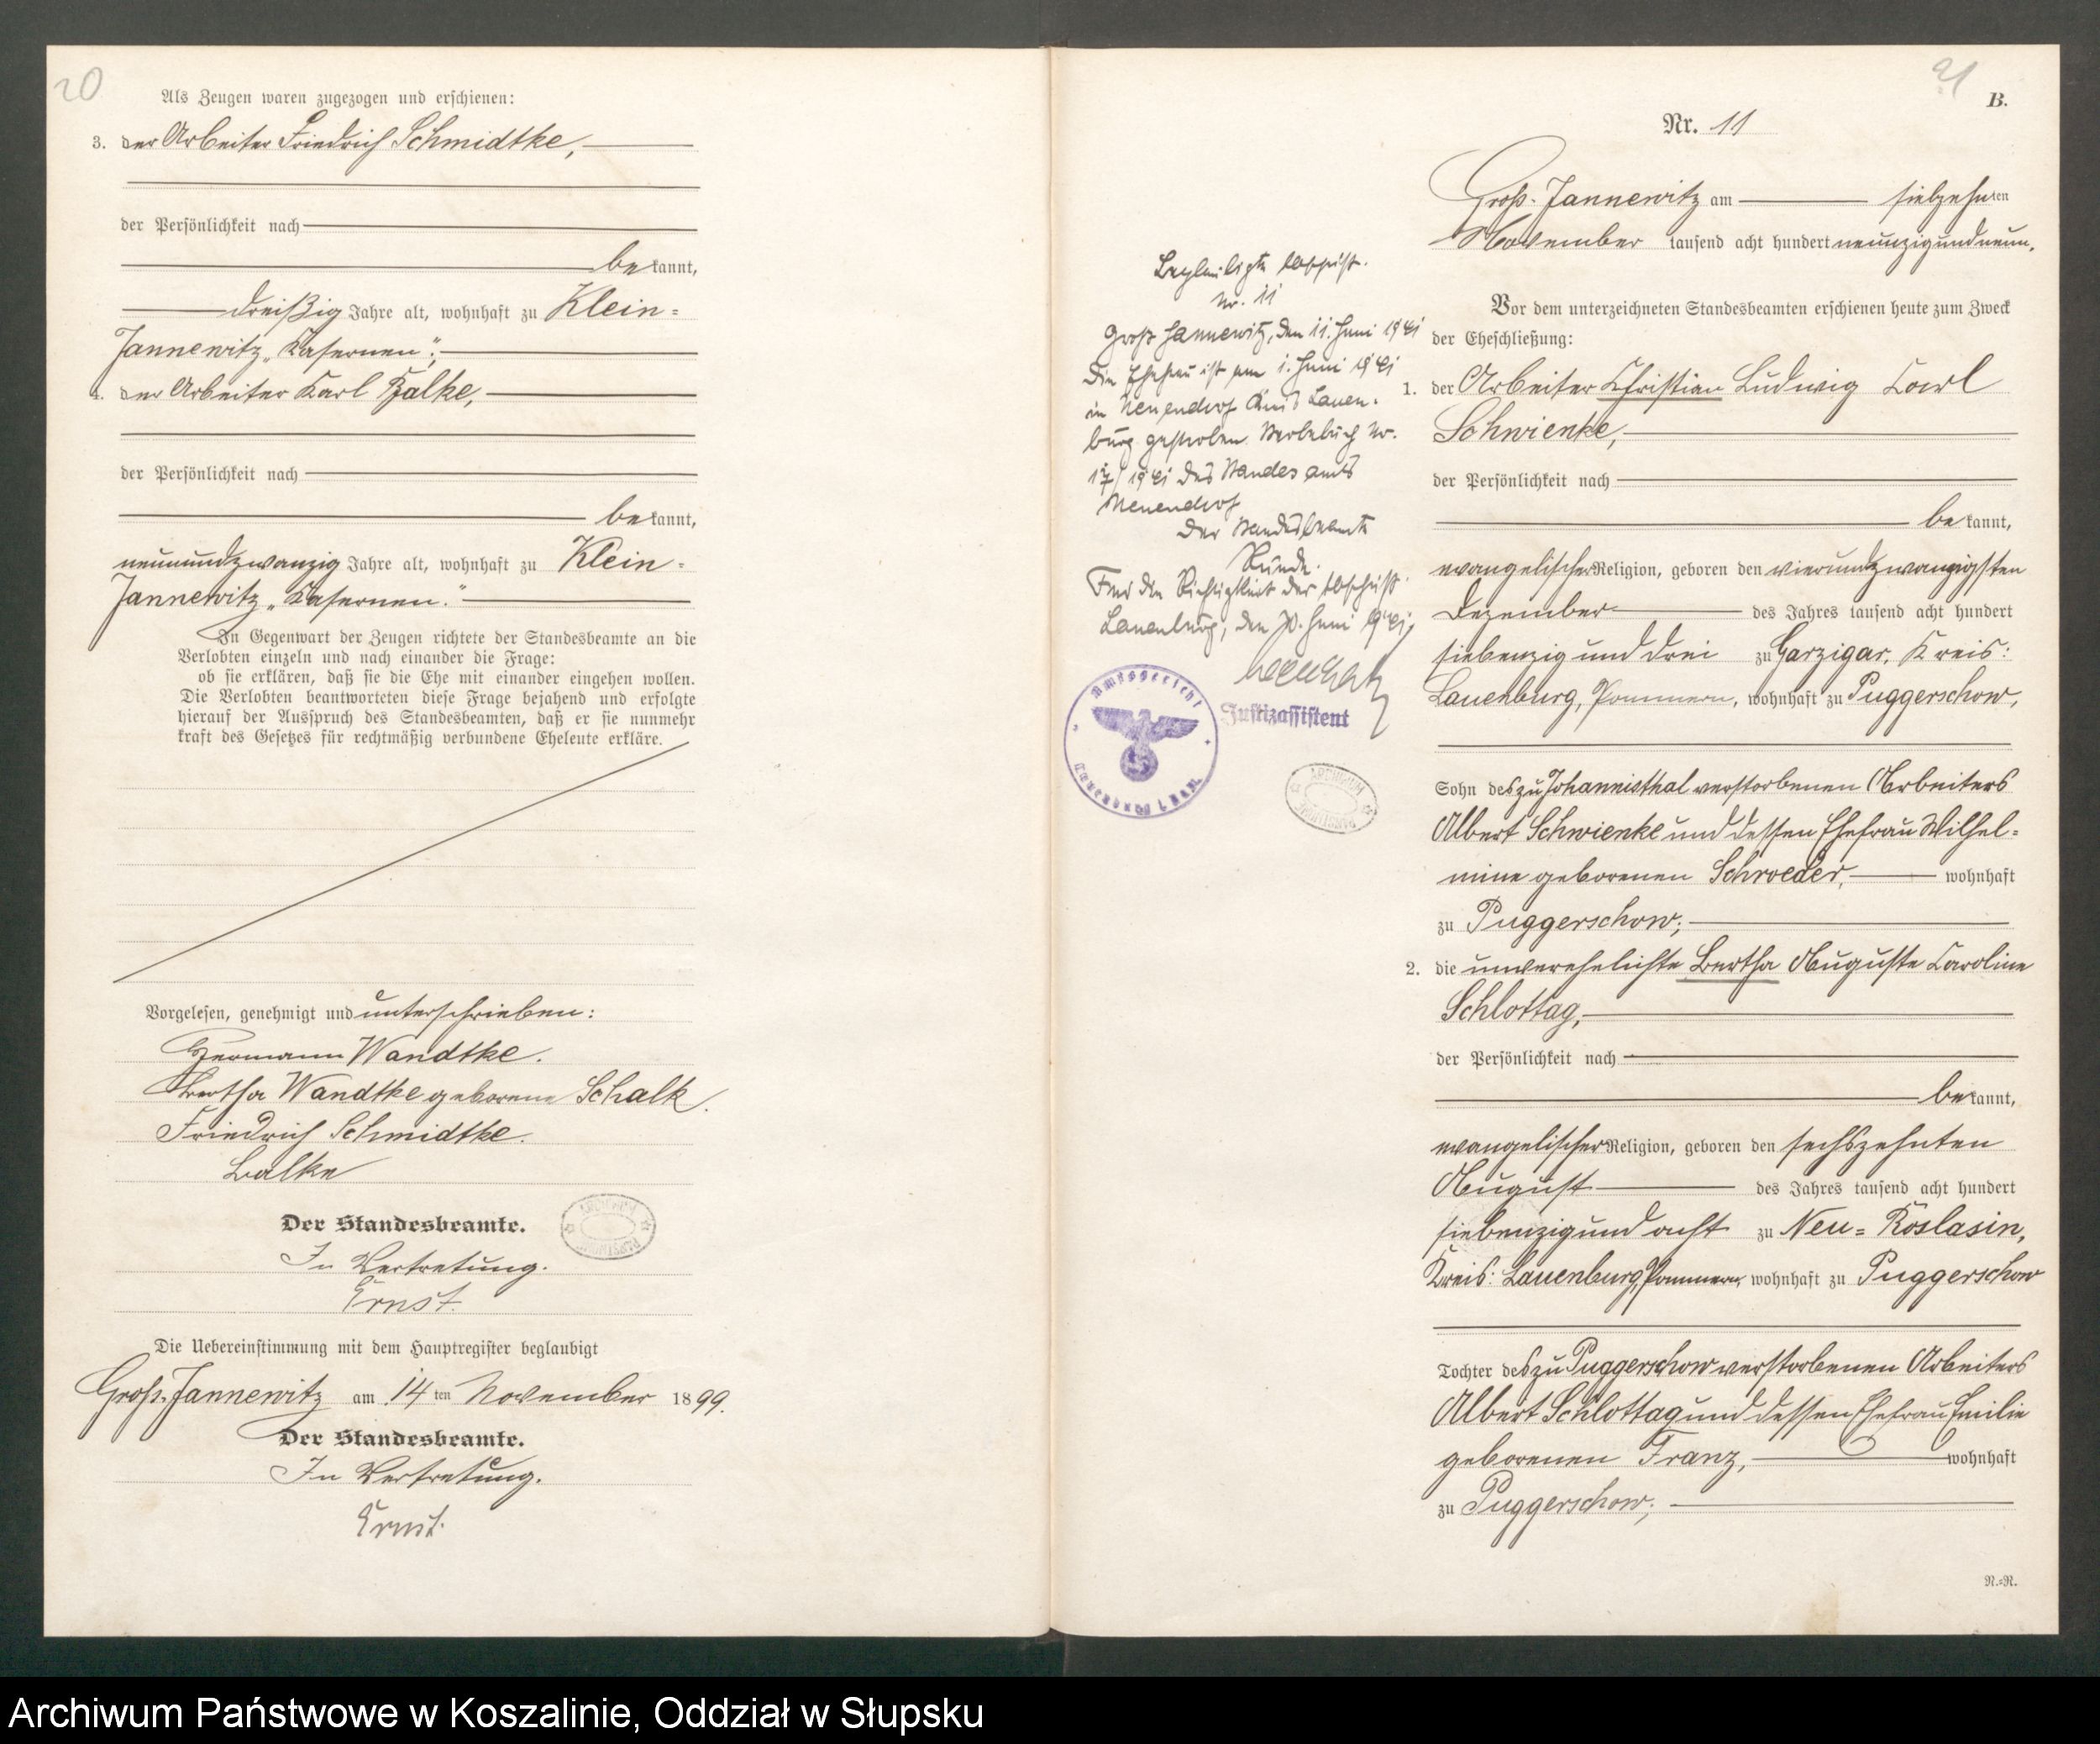 20
Als Zeugen waren zugezogen und erschienen:
3. der Arbeiter Friedrich Schmidtke,
der Persönlichkeit nach
bekannt,
dreißig Jahre alt, wohnhaft zu Klein-
Jannewitz „Kasernen“;
4. der Arbeiter Karl Balke,
der Persönlichkeit nach
bekannt,
neunundzwanzig Jahre alt, wohnhaft zu Klein-
Jannewitz „Kasernen.“
In Gegenwart der Zeugen richtete der Standesbeamte an die
Verlobten einzeln und nach einander die Frage:
ob sie erklären, daß sie die Ehe mit einander eingehen wollen.
Die Verlobten beantworteten diese Frage bejahend und erfolgte
hierauf der Ausspruch des Standesbeamten, daß er sie nunmehr
kraft des Gesetzes für rechtmäßig verbundene Eheleute erkläre.
Vorgelesen, genehmigt und unterschrieben:
Hermann Wandtke.
Bertha Wandtke geborene Schalk.
Friedrich Schmidtke.
Balke
Der Standesbeamte.
In Vertretung.
Ernst.
ARCHIWUM PAŃSTWOWE
Die Uebereinstimmung mit dem Hauptregister beglaubigt
Groß-Jannewitz am 14 ten November 1899.
Der Standesbeamte.
In Vertretung.
Ernst.
21
B.
Nr. 11
Groß-Jannewitz am siebzehnten
November tausend acht hundert neunzig und neun.
Vor dem unterzeichneten Standesbeamten erschienen heute zum Zweck
der Eheschließung:
1. der Arbeiter Christian Ludwig Carl
Schwienke,
der Persönlichkeit nach
bekannt,
evangelischer Religion, geboren den vierundzwanzigsten
Dezember des Jahres tausend acht hundert
siebenzig und drei zu Garzigar, Kreis:
Lauenburg, Pommern, wohnhaft zu Puggerschow,
Sohn des zu Johannisthal verstorbenen Arbeiters
Albert Schwienke und dessen Ehefrau Wilhel-
mine geborenen Schroeder, wohnhaft
zu Puggerschow;
2. die unverehelichte Bertha Auguste Caroline
Schlottag,
der Persönlichkeit nach
bekannt,
evangelischer Religion, geboren den sechszehnten
August des Jahres tausend acht hundert
siebenzig und acht zu Neu-Koslasin,
Kreis: Lauenburg, Pommern, wohnhaft zu Puggerschow
Tochter des zu Puggerschow verstorbenen Arbeiters
Albert Schlottag und dessen Ehefrau Emilie
geborenen Franz, wohnhaft
zu Puggerschow;
R.=R.
Beglaubigte Abschrift.
Nr. 11
Groß Jannewitz, den 11. Juni 1941
Die Ehefrau ist am 1. Juni 1941
in Neuendorf Kreis Lauen-
burg gestorben Sterbebuch Nr.
17/1941 des Standesamts
Neuendorf
Der Standesbeamte
Für die Richtigkeit der Abschrift.
Lauenburg, den 30. Juni 1941,
Justizassistent
Amtsgericht
Lauenburg i. Pom.
ARCHIWUM PAŃSTWOWE
Archiwum Państwowe w Koszalinie, Oddział w Słupsku